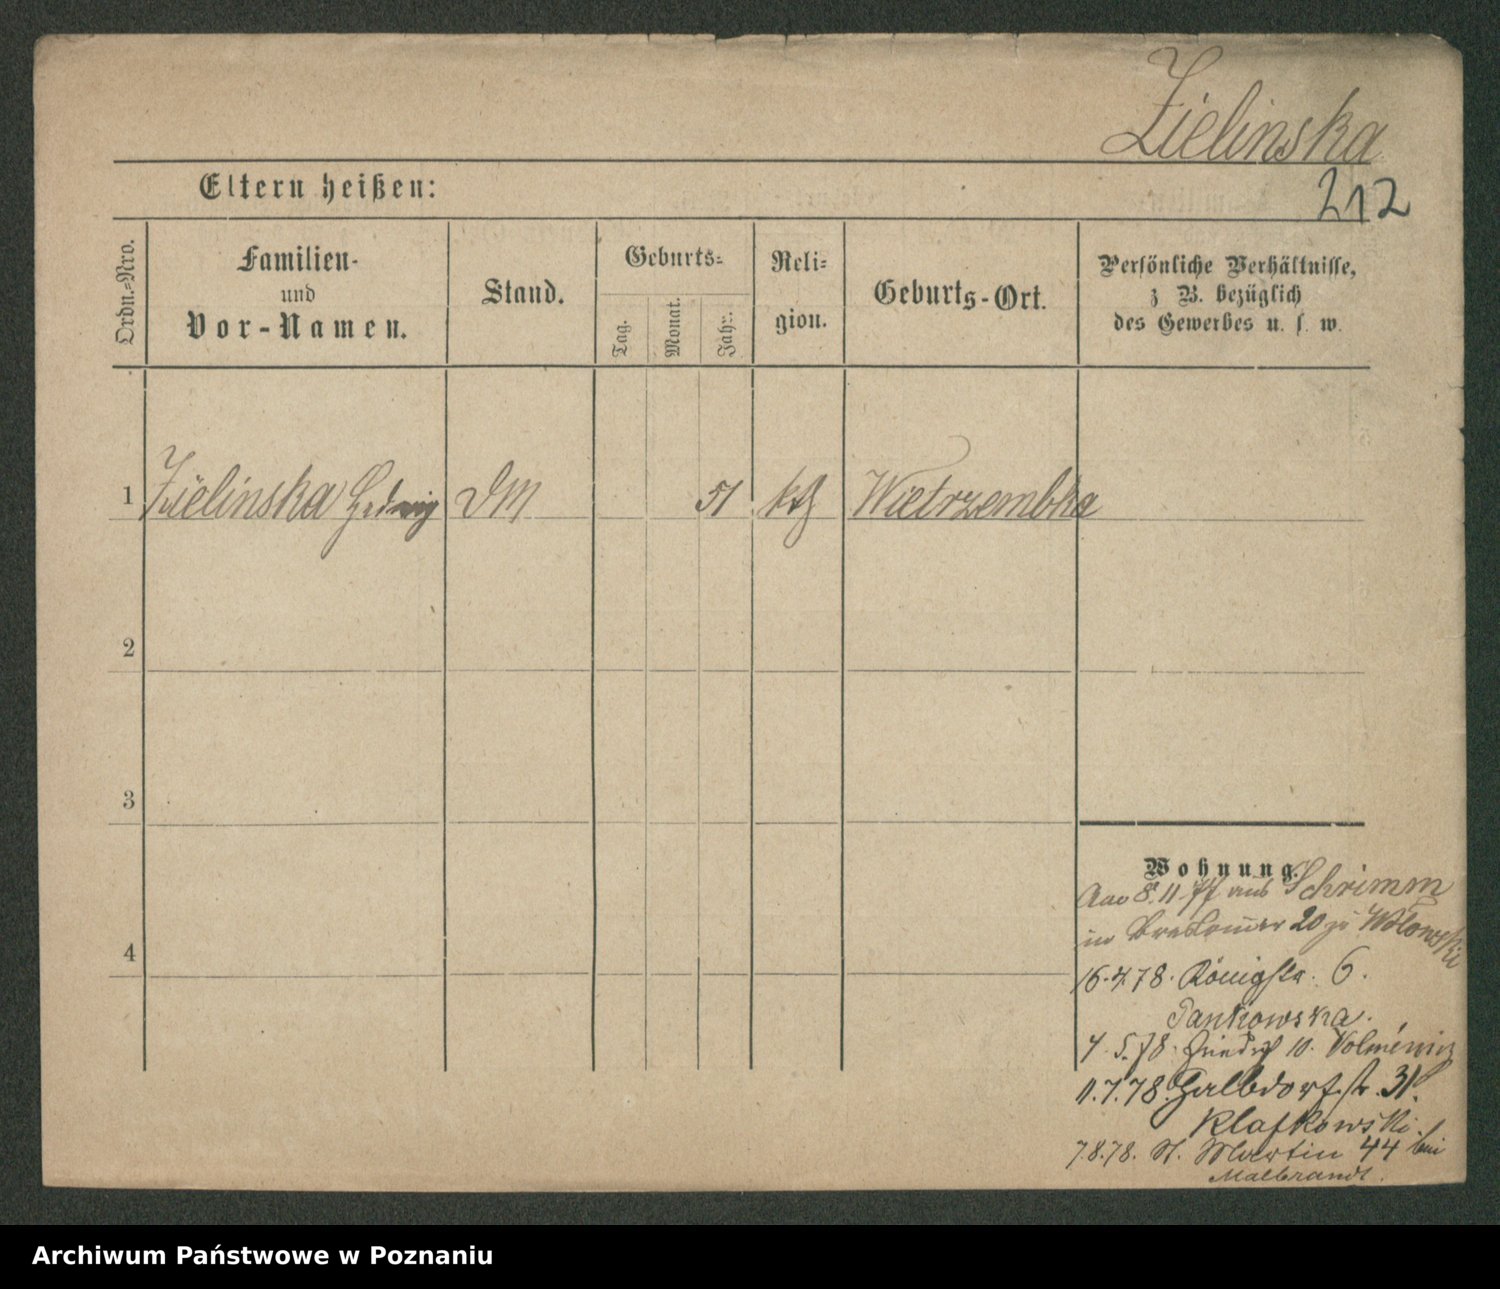 Zielinska
212
Eltern heißen:
Ordn.-Nro.
Familien-
und
Vor-Namen.
Stand.
Geburts-
Tag.
Monat.
Jahr.
Reli-
gion.
Geburts-Ort.
Persönliche Verhältnisse,
z B. bezüglich
des Gewerbes u. s. w.
1 Zielinska Hedwig DM 51 kth Wietrzembka
2
3
4
Wohnung.
8.11.77 aus Schrimm
in 20 zu Wolowski
16.4.78. Königstr. 6.
Pankowska.
4.5.78. Friedr 10.
11.7.78. Halbdorfstr. 31.
Klafkowski.
7.8.78. St. Martin 44 bei
Malbrandt.
Archiwum Państwowe w Poznaniu